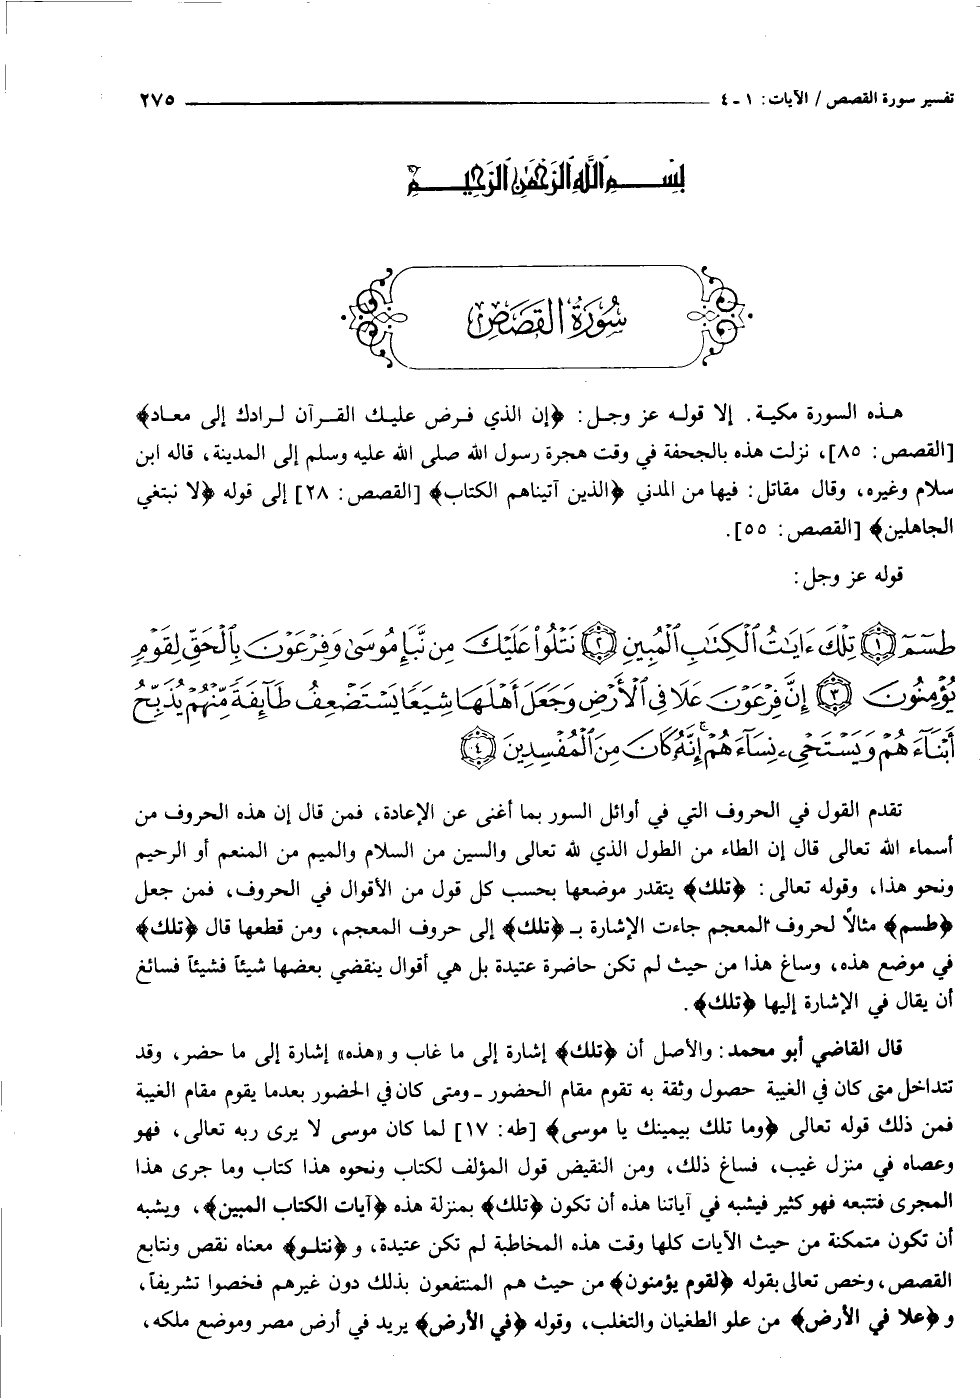 تفسير سورة القصص / الآيات: ١ ـ ٤ ٢٧٥
بِسْمِ اللَّهِ الرَّحْمَٰنِ الرَّحِيمِ
سُورَةُ القَصَصِ
هذه السورة مكية. إلا قوله عز وجل: ﴿إن الذي فرض عليك القرآن لرادك إلى معاد﴾
[القصص: ٨٥]، نزلت هذه بالجحفة في وقت هجرة رسول الله صلى الله عليه وسلم إلى المدينة، قاله ابن
سلام وغيره، وقال مقاتل: فيها من المدني ﴿الذين آتيناهم الكتاب﴾ [القصص: ٢٨] إلى قوله ﴿لا نبتغي
الجاهلين﴾ [القصص: ٥٥].
قوله عز وجل:
طسٓمٓ ﴿١﴾ تِلْكَ ءَايَٰتُ ٱلْكِتَٰبِ ٱلْمُبِينِ ﴿٢﴾ نَتْلُواْ عَلَيْكَ مِن نَّبَإِ مُوسَىٰ وَفِرْعَوْنَ بِٱلْحَقِّ لِقَوْمٍ
يُؤْمِنُونَ ﴿٣﴾ إِنَّ فِرْعَوْنَ عَلَا فِى ٱلْأَرْضِ وَجَعَلَ أَهْلَهَا شِيَعًا يَسْتَضْعِفُ طَآئِفَةً مِّنْهُمْ يُذَبِّحُ
أَبْنَآءَهُمْ وَيَسْتَحْىِۦ نِسَآءَهُمْ ۚ إِنَّهُۥ كَانَ مِنَ ٱلْمُفْسِدِينَ ﴿٤﴾
تقدم القول في الحروف التي في أوائل السور بما أغنى عن الإعادة، فمن قال إن هذه الحروف من
أسماء الله تعالى قال إن الطاء من الطول الذي لله تعالى والسين من السلام والميم من المنعم أو الرحيم
ونحو هذا، وقوله تعالى: ﴿تلك﴾ يتقدر موضعها بحسب كل قول من الأقوال في الحروف، فمن جعل
﴿طسم﴾ مثالاً لحروف المعجم جاءت الإشارة بـ ﴿تلك﴾ إلى حروف المعجم، ومن قطعها قال ﴿تلك﴾
في موضع هذه، وساغ هذا من حيث لم تكن حاضرة عتيدة بل هي أقوال ينقضي بعضها شيئاً فشيئاً فسائغ
أن يقال في الإشارة إليها ﴿تلك﴾.
قال القاضي أبو محمد: والأصل أن ﴿تلك﴾ إشارة إلى ما غاب و «هذه» إشارة إلى ما حضر، وقد
تتداخل متى كان في الغيبة حصول وثقة به تقوم مقام الحضور ـ ومتى كان في الحضور بعدما يقوم مقام الغيبة
فمن ذلك قوله تعالى ﴿وما تلك بيمينك يا موسى﴾ [طه: ١٧] لما كان موسى لا يرى ربه تعالى، فهو
وعصاه في منزل غيب، فساغ ذلك، ومن النقيض قول المؤلف لكتاب ونحوه هذا كتاب وما جرى هذا
المجرى فتتبعه فهو كثير فيشبه في آياتنا هذه أن تكون ﴿تلك﴾ بمنزلة هذه ﴿آيات الكتاب المبين﴾، ويشبه
أن تكون متمكنة من حيث الآيات كلها وقت هذه المخاطبة لم تكن عتيدة، و ﴿نتلو﴾ معناه نقص ونتابع
القصص، وخص تعالى بقوله ﴿لقوم يؤمنون﴾ من حيث هم المنتفعون بذلك دون غيرهم فخصوا تشريفاً،
و ﴿علا في الأرض﴾ من علو الطغيان والتغلب، وقوله ﴿في الأرض﴾ يريد في أرض مصر وموضع ملكه،